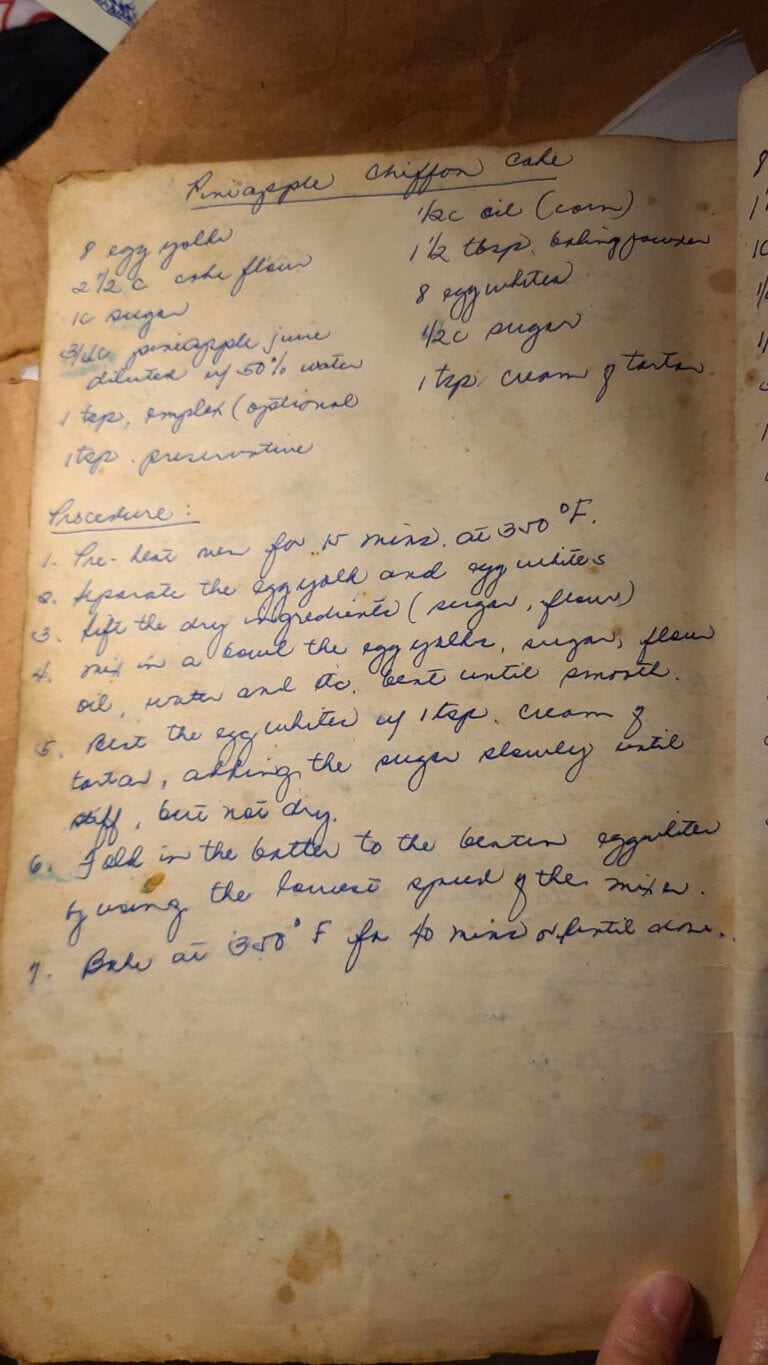 Pineapple Chiffon Cake
8 egg yolks
2 1/2 c cake flour
1c sugar
3/4c pineapple juice
diluted w/ 50% water
1 tsp. emplex (optional
1 tsp. preservative
1/2c oil (corn)
1 1/2 tbsp. baking powder
8 egg whites
1/2c sugar
1 tsp. cream of tartar
Procedure:
1. Pre-heat oven for 15 mins. at 350°F.
2. Separate the egg yolk and egg whites
3. Sift the dry ingredients (sugar, flour)
4. Mix in a bowl the egg yolks, sugar, flour
oil, water and etc. beat until smooth.
5. Beat the egg whites w/ 1 tsp. cream of
tartar, adding the sugar slowly until
stiff, but not dry.
6. Fold in the batter to the beaten eggwhites
by using the lowest speed of the mixer.
7. Bake at 350°F for 40 mins or until done.